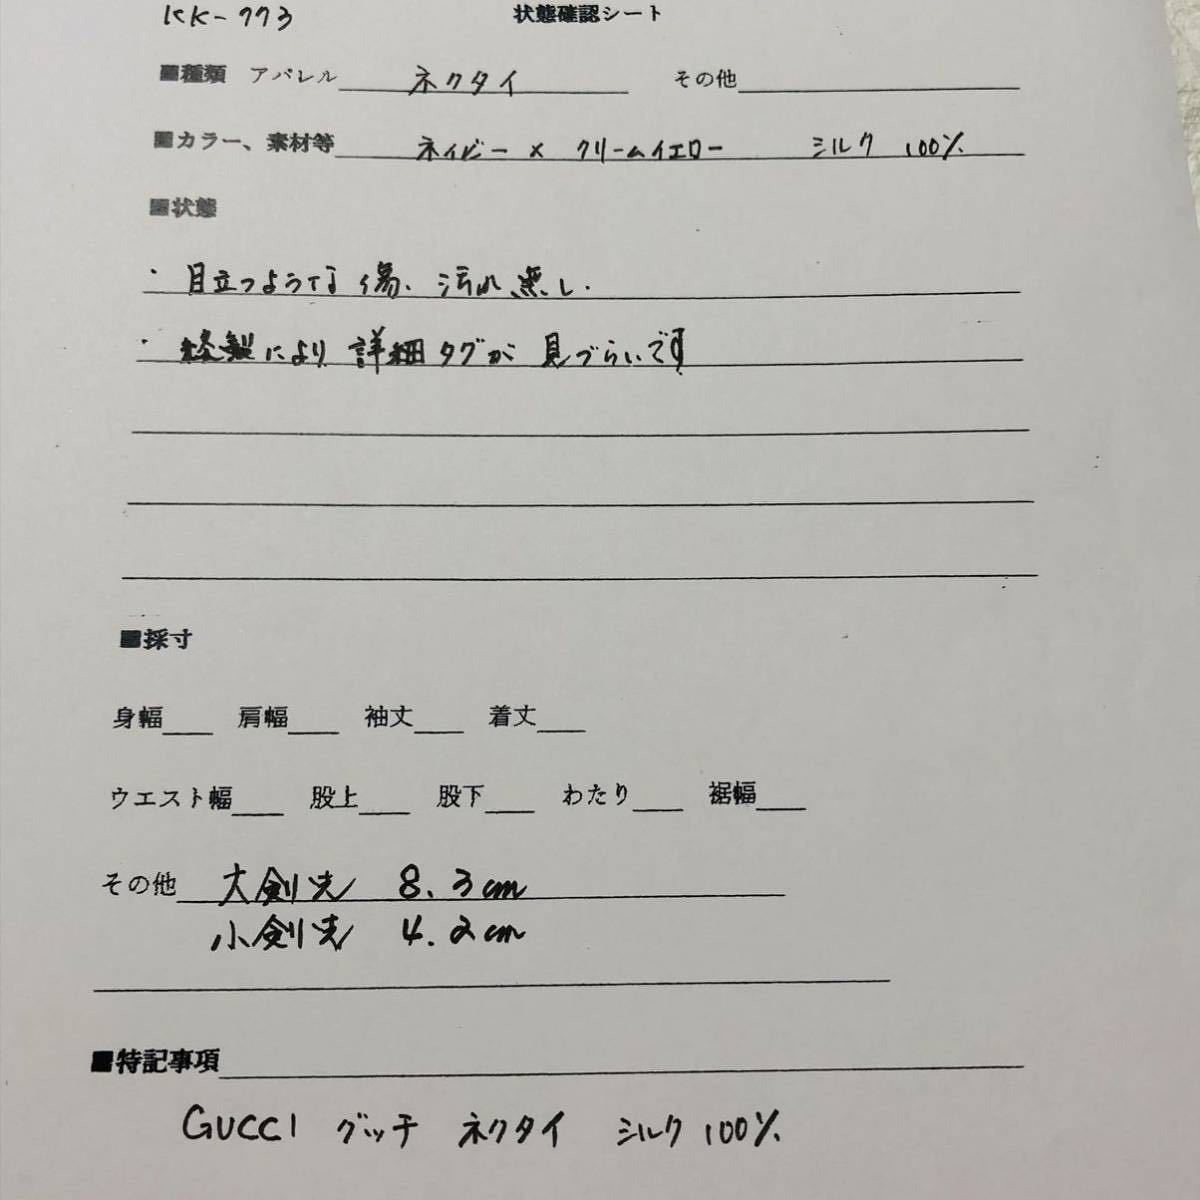 KK-773 状態確認シート
■種類 アパレル ネクタイ その他
■カラー、素材等 ネイビー × クリームイエロー シルク 100%
■状態
・目立つような傷、汚れ無し.
・縫製により 詳細タグが 見づらいです
■採寸
身幅 肩幅 袖丈 着丈
ウエスト幅 股上 股下 わたり 裾幅
その他 大剣先 8.3cm
小剣先 4.2cm
■特記事項
GUCCI グッチ ネクタイ シルク 100%